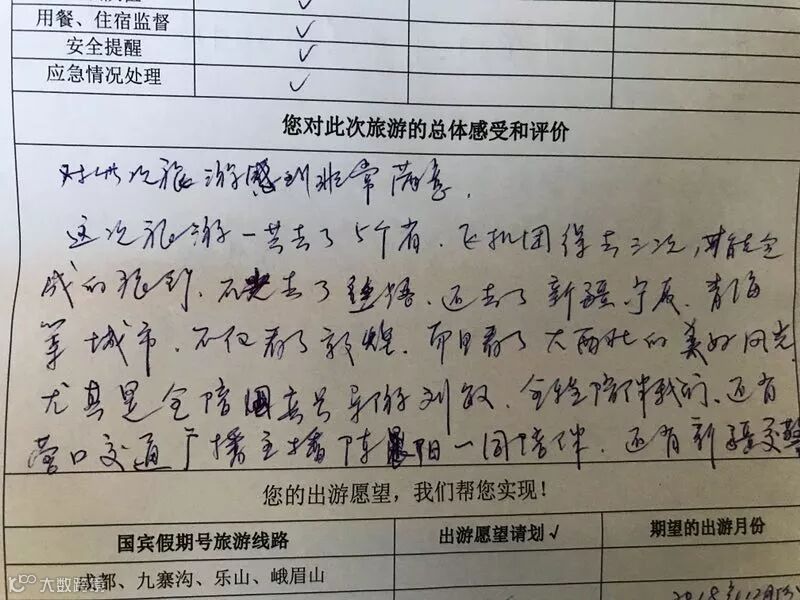 用餐、住宿监督 ✓
安全提醒 ✓
应急情况处理 ✓
您对此次旅游的总体感受和评价
对此次旅游感到非常满意.
这次旅游一共去了5个省.飞机团得去三次,才能完
成的旅行.不光去了,还去了新疆宁夏.青海
等城市.不仅看了敦煌.而且看了大西北的美好风光
尤其是全陪国宾号导游刘敏.全程陪伴我们.还有
营口交通广播主播陈晨阳一同陪伴.还有新疆交警
您的出游愿望,我们帮您实现!
国宾假期号旅游线路 出游愿望请划√ 期望的出游月份
成都、九寨沟、乐山、峨眉山
2018年12月
大数跨境